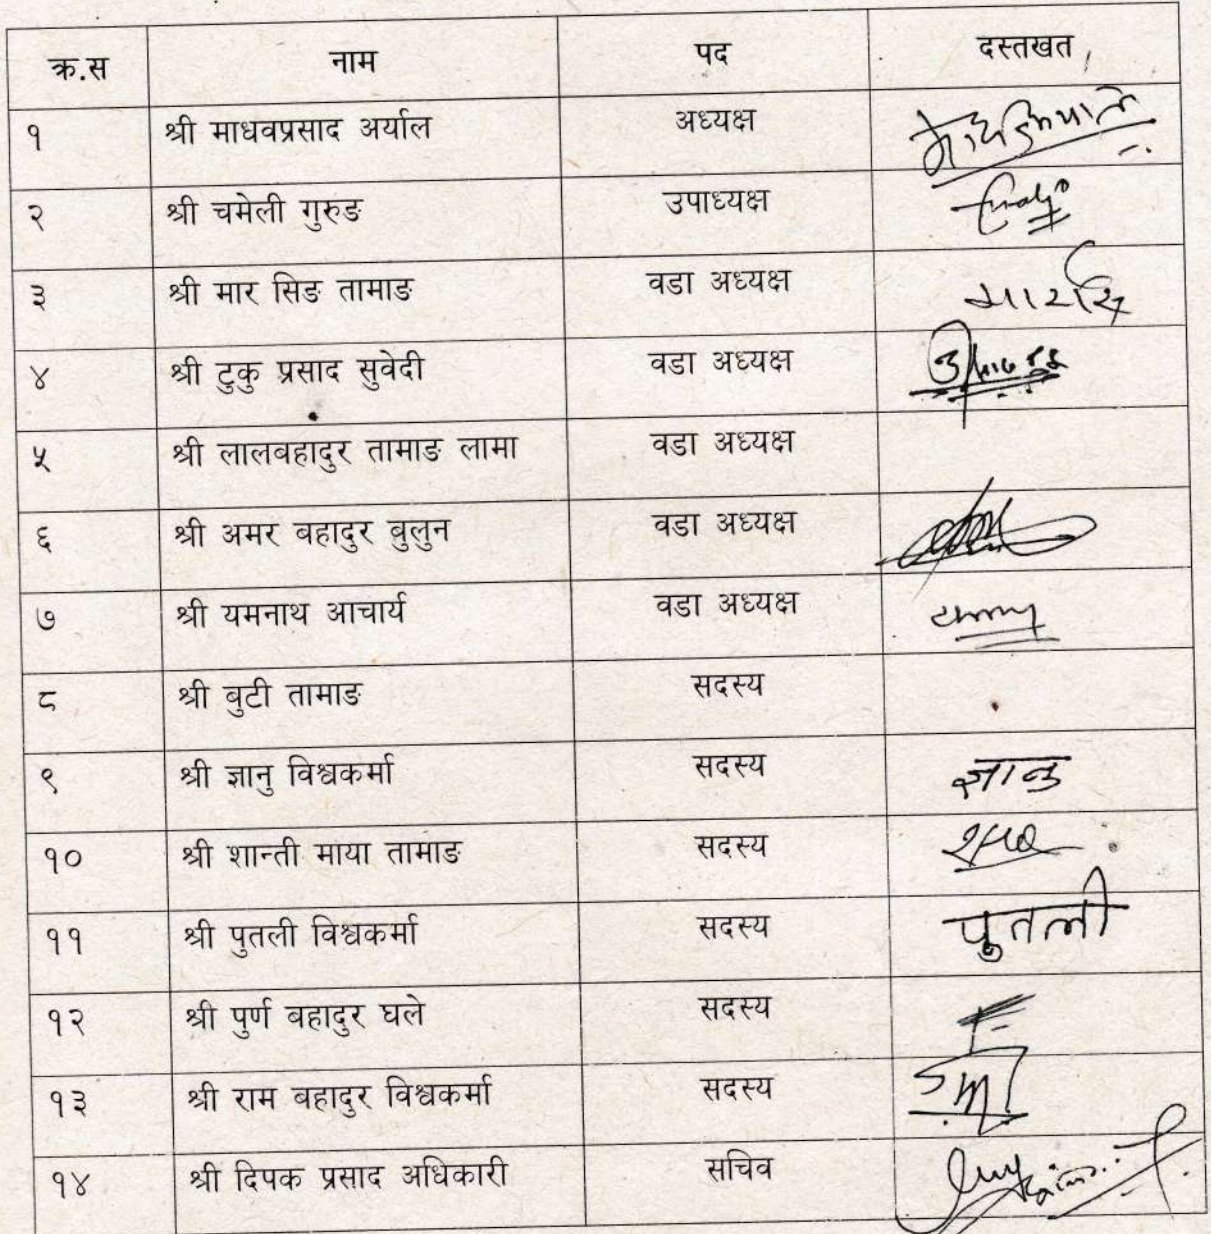 क्र.स नाम पद दस्तखत
१ श्री माधवप्रसाद अर्याल अध्यक्ष
२ श्री चमेली गुरुङ उपाध्यक्ष
३ श्री मार सिङ तामाङ वडा अध्यक्ष
४ श्री टुकु प्रसाद सुवेदी वडा अध्यक्ष
५ श्री लालबहादुर तामाङ लामा वडा अध्यक्ष
६ श्री अमर बहादुर बुलुन वडा अध्यक्ष
७ श्री यमनाथ आचार्य वडा अध्यक्ष
८ श्री बुटी तामाङ सदस्य
९ श्री ज्ञानु विश्वकर्मा सदस्य ज्ञानु
१० श्री शान्ती माया तामाङ सदस्य
११ श्री पुतली विश्वकर्मा सदस्य पुतली
१२ श्री पुर्ण बहादुर घले सदस्य
१३ श्री राम बहादुर विश्वकर्मा सदस्य
१४ श्री दिपक प्रसाद अधिकारी सचिव